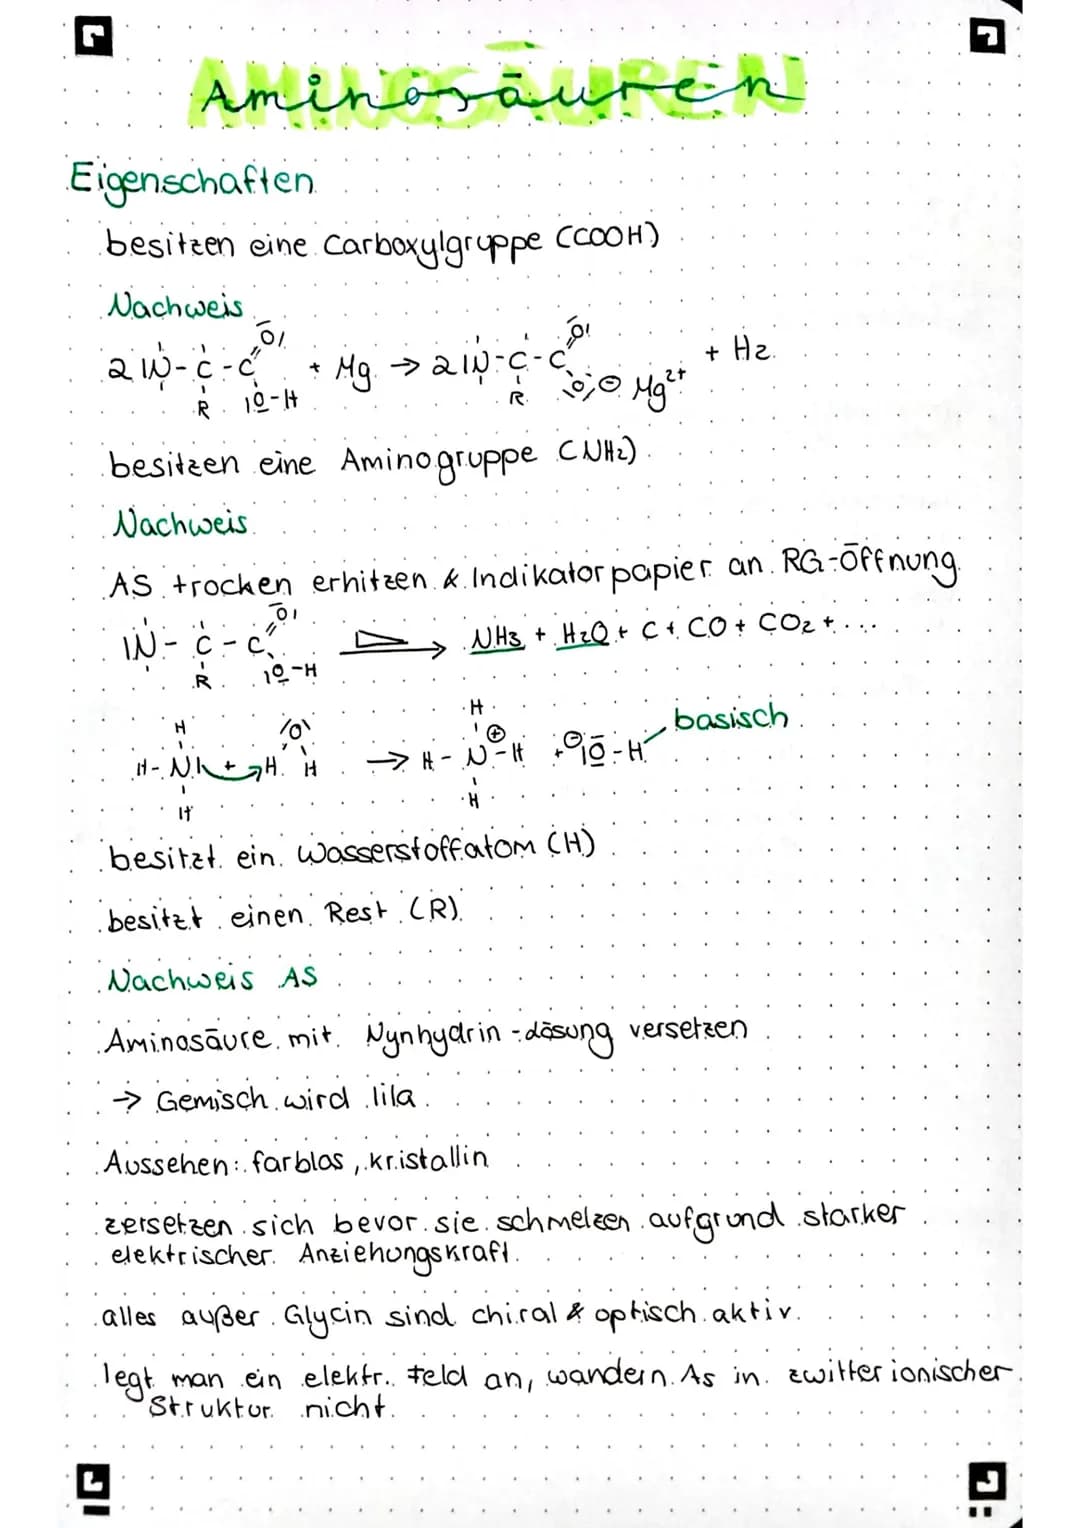 Aminosäuren
Eigenschaften
besitzen eine Carboxylgruppe (COOH)
Nachweis
2 N-C-C O O-H R + Mg → 2 N-C-C O O⊖ R Mg2+ + H2
besitzen eine Aminogruppe (NH2)
Nachweis
AS trocken erhitzen & Indikatorpapier an RG-Öffnung
N-C-C O O-H R → NH3 + H2O + C + CO + CO2 + ...
H-N-H H + H O H → H-N⊕-H H H + ⊖O-H basisch
besitzt ein Wasserstoffatom (H)
besitzt einen Rest (R)
Nachweis AS
Aminosäure mit Nynhydrin-Lösung versetzen
→ Gemisch wird lila
Aussehen: farblos, kristallin
zersetzen sich bevor sie schmelzen aufgrund starker
elektrischer Anziehungskraft.
alles außer Glycin sind chiral & optisch aktiv.
legt man ein elektr. Feld an, wandern As in zwitterionischer
Struktur nicht.